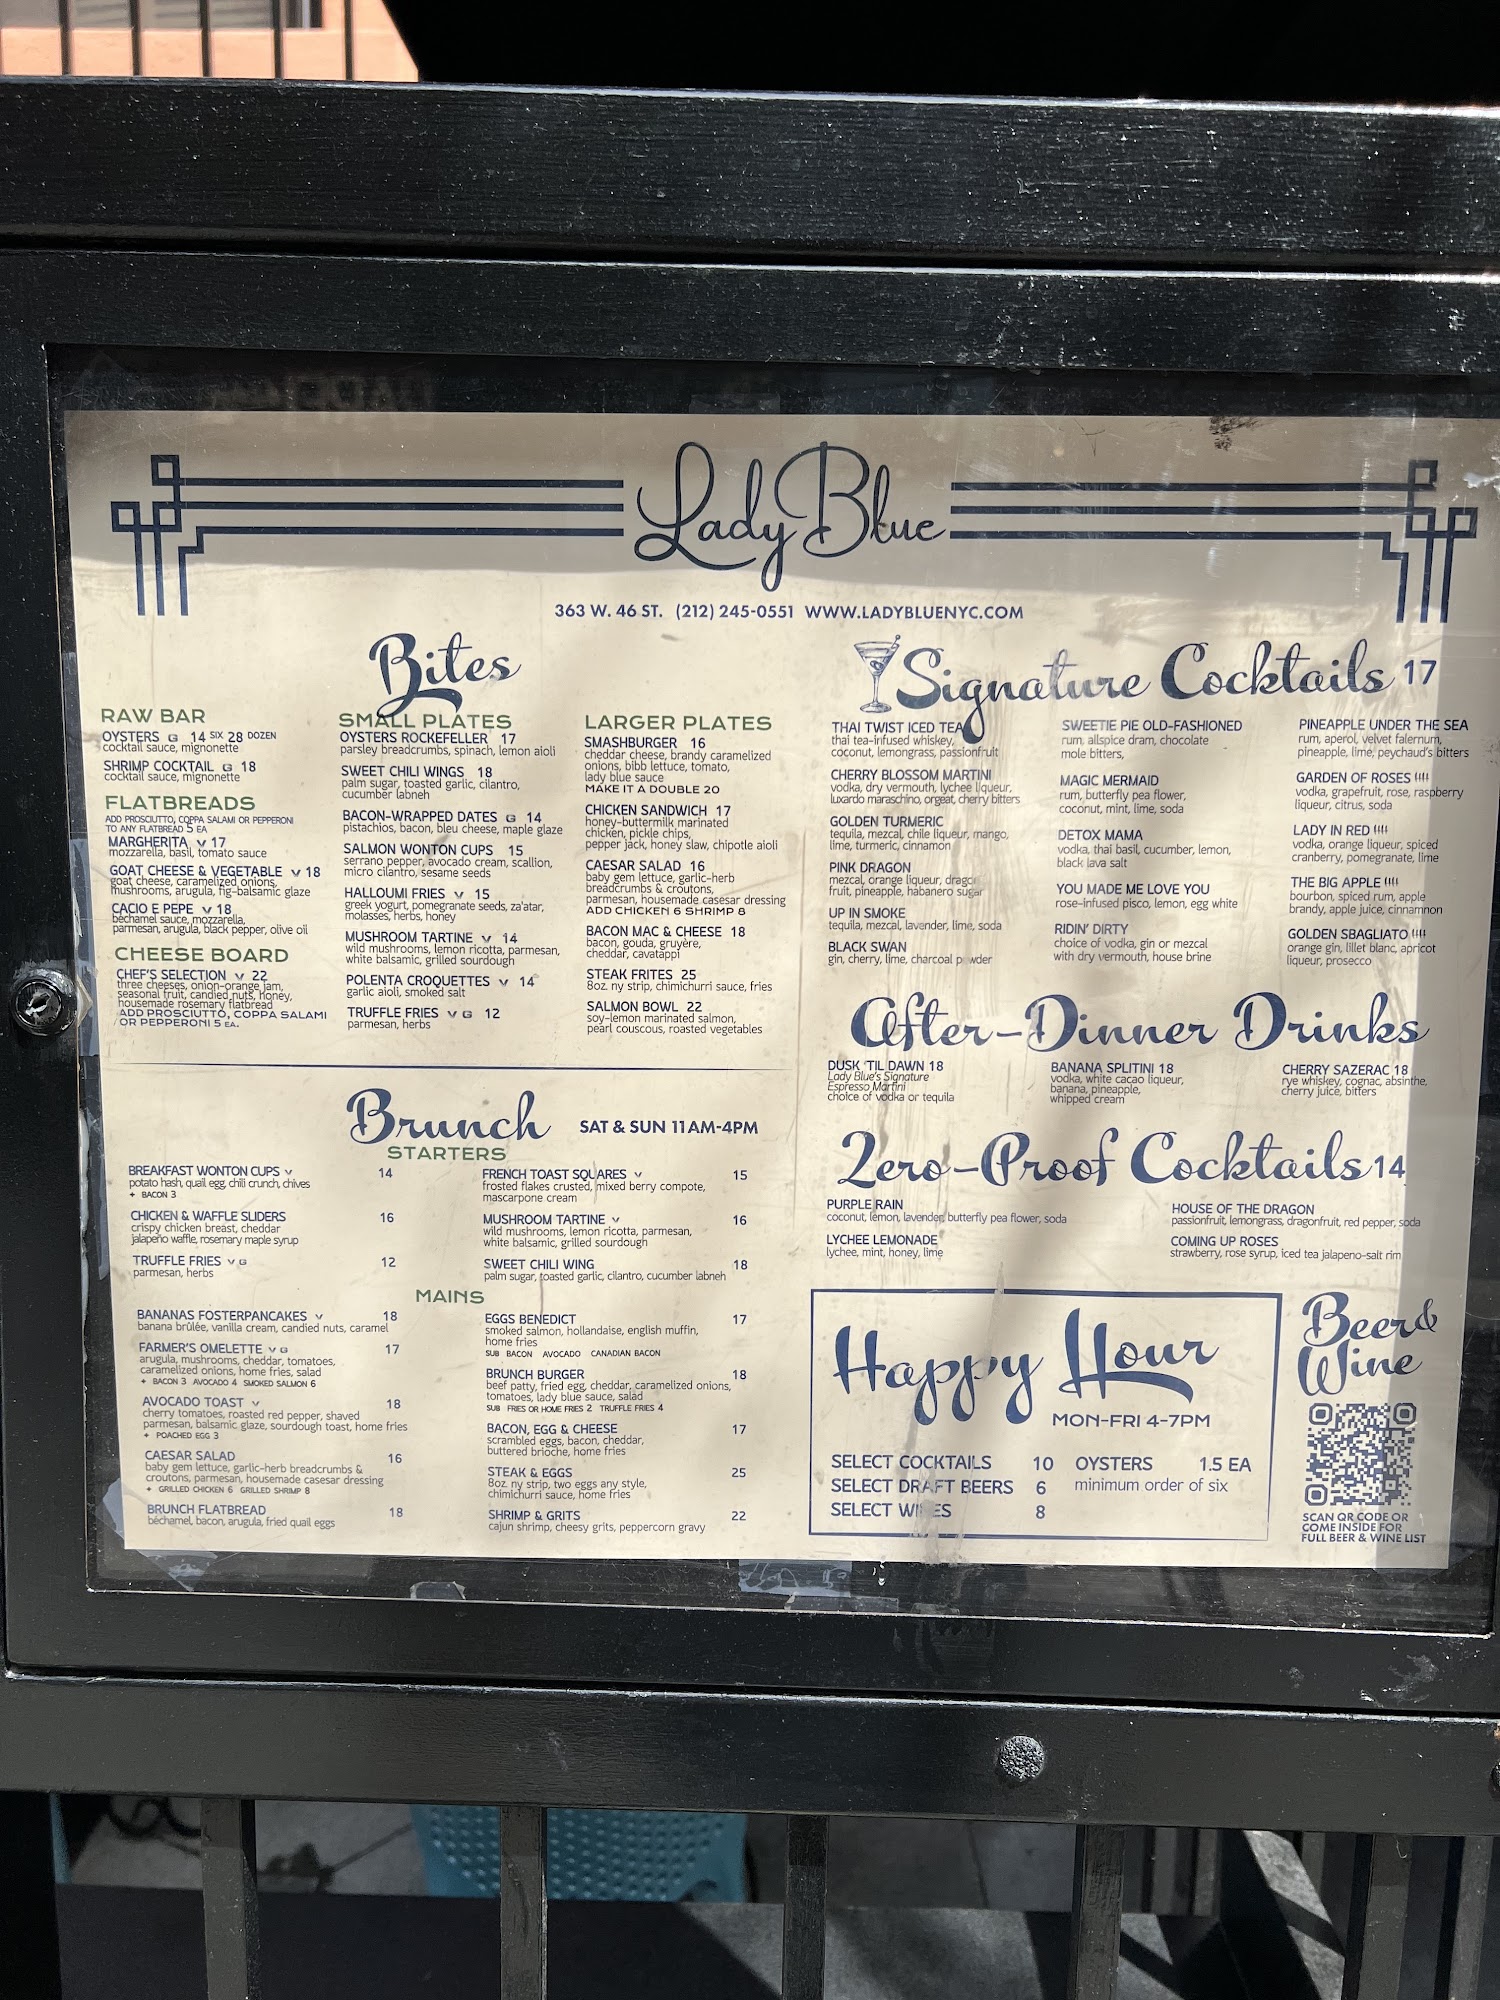 Lady Blue
363 W. 46 ST. (212) 245-0551 WWW.LADYBLUENYC.COM
Bites
RAW BAR
OYSTERS G 14 SIX 28 DOZEN
cocktail sauce, mignonette
SHRIMP COCKTAIL G 18
cocktail sauce, mignonette
FLATBREADS
ADD PROSCIUTTO, COPPA SALAMI OR PEPPERONI
TO ANY FLATBREAD 5 EA
MARGHERITA V 17
mozzarella, basil, tomato sauce
GOAT CHEESE & VEGETABLE V 18
goat cheese, caramelized onions,
mushrooms, arugula, fig-balsamic glaze
CACIO E PEPE V 18
béchamel sauce, mozzarella,
parmesan, arugula, black pepper, olive oil
CHEESE BOARD
CHEF'S SELECTION V 22
three cheeses, onion-orange jam,
seasonal fruit, candied nuts, honey,
housemade rosemary flatbread
ADD PROSCIUTTO, COPPA SALAMI
/OR PEPPERONI 5 EA.
SMALL PLATES
OYSTERS ROCKEFELLER 17
parsley breadcrumbs, spinach, lemon aioli
SWEET CHILI WINGS 18
palm sugar, toasted garlic, cilantro,
cucumber labneh
BACON-WRAPPED DATES G 14
pistachios, bacon, bleu cheese, maple glaze
SALMON WONTON CUPS 15
serrano pepper, avocado cream, scallion,
micro cilantro, sesame seeds
HALLOUMI FRIES V 15
greek yogurt, pomegranate seeds, za'atar,
molasses, herbs, honey
MUSHROOM TARTINE V 14
wild mushrooms, lemon ricotta, parmesan,
white balsamic, grilled sourdough
POLENTA CROQUETTES V 14
garlic aioli, smoked salt
TRUFFLE FRIES V G 12
parmesan, herbs
LARGER PLATES
SMASHBURGER 16
cheddar cheese, brandy caramelized
onions, bibb lettuce, tomato,
lady blue sauce
MAKE IT A DOUBLE 20
CHICKEN SANDWICH 17
honey-buttermilk marinated
chicken, pickle chips,
pepper jack, honey slaw, chipotle aioli
CAESAR SALAD 16
baby gem lettuce, garlic-herb
breadcrumbs & croutons,
parmesan, housemade casesar dressing
ADD CHICKEN 6 SHRIMP 8
BACON MAC & CHEESE 18
bacon, gouda, gruyère,
cheddar, cavatappi
STEAK FRITES 25
8oz. ny strip, chimichurri sauce, fries
SALMON BOWL 22
soy-lemon marinated salmon,
pearl couscous, roasted vegetables
Brunch SAT & SUN 11AM-4PM
STARTERS
BREAKFAST WONTON CUPS V 14
potato hash, quail egg, chili crunch, chives
+ BACON 3
CHICKEN & WAFFLE SLIDERS 16
crispy chicken breast, cheddar
jalapeño waffle, rosemary maple syrup
TRUFFLE FRIES V G 12
parmesan, herbs
FRENCH TOAST SQUARES V 15
frosted flakes crusted, mixed berry compote,
mascarpone cream
MUSHROOM TARTINE V 16
wild mushrooms, lemon ricotta, parmesan,
white balsamic, grilled sourdough
SWEET CHILI WING 18
palm sugar, toasted garlic, cilantro, cucumber labneh
MAINS
BANANAS FOSTERPANCAKES V 18
banana brûlée, vanilla cream, candied nuts, caramel
FARMER'S OMELETTE V G 17
arugula, mushrooms, cheddar, tomatoes,
caramelized onions, home fries, salad
+ BACON 3 AVOCADO 4 SMOKED SALMON 6
AVOCADO TOAST V 18
cherry tomatoes, roasted red pepper, shaved
parmesan, balsamic glaze, sourdough toast, home fries
+ POACHED EGG 3
CAESAR SALAD 16
baby gem lettuce, garlic-herb breadcrumbs &
croutons, parmesan, housemade casesar dressing
+ GRILLED CHICKEN 6 GRILLED SHRIMP 8
BRUNCH FLATBREAD 18
béchamel, bacon, arugula, fried quail eggs
EGGS BENEDICT 17
smoked salmon, hollandaise, english muffin,
home fries
SUB BACON AVOCADO CANADIAN BACON
BRUNCH BURGER 18
beef patty, fried egg, cheddar, caramelized onions,
tomatoes, lady blue sauce, salad
SUB FRIES OR HOME FRIES 2 TRUFFLE FRIES 4
BACON, EGG & CHEESE 17
scrambled eggs, bacon, cheddar,
buttered brioche, home fries
STEAK & EGGS 25
8oz. ny strip, two eggs any style,
chimichurri sauce, home fries
SHRIMP & GRITS 22
cajun shrimp, cheesy grits, peppercorn gravy
Signature Cocktails 17
THAI TWIST ICED TEA
thai tea-infused whiskey,
coconut, lemongrass, passionfruit
CHERRY BLOSSOM MARTINI
vodka, dry vermouth, lychee liqueur,
luxardo maraschino, orgeat, cherry bitters
GOLDEN TURMERIC
tequila, mezcal, chile liqueur, mango,
lime, turmeric, cinnamon
PINK DRAGON
mezcal, orange liqueur, dragon
fruit, pineapple, habanero sugar
UP IN SMOKE
tequila, mezcal, lavender, lime, soda
BLACK SWAN
gin, cherry, lime, charcoal powder
SWEETIE PIE OLD-FASHIONED
rum, allspice dram, chocolate
mole bitters,
MAGIC MERMAID
rum, butterfly pea flower,
coconut, mint, lime, soda
DETOX MAMA
vodka, thai basil, cucumber, lemon,
black lava salt
YOU MADE ME LOVE YOU
rose-infused pisco, lemon, egg white
RIDIN' DIRTY
choice of vodka, gin or mezcal
with dry vermouth, house brine
PINEAPPLE UNDER THE SEA
rum, aperol, velvet falernum,
pineapple, lime, peychaud's bitters
GARDEN OF ROSES
vodka, grapefruit, rose, raspberry
liqueur, citrus, soda
LADY IN RED
vodka, orange liqueur, spiced
cranberry, pomegranate, lime
THE BIG APPLE
bourbon, spiced rum, apple
brandy, apple juice, cinnamon
GOLDEN SBAGLIATO
orange gin, lillet blanc, apricot
liqueur, prosecco
After-Dinner Drinks
DUSK 'TIL DAWN 18
Lady Blue's Signature
Espresso Martini
choice of vodka or tequila
BANANA SPLITINI 18
vodka, white cacao liqueur,
banana, pineapple,
whipped cream
CHERRY SAZERAC 18
rye whiskey, cognac, absinthe,
cherry juice, bitters
Zero-Proof Cocktails 14
PURPLE RAIN
coconut, lemon, lavender, butterfly pea flower, soda
LYCHEE LEMONADE
lychee, mint, honey, lime
HOUSE OF THE DRAGON
passionfruit, lemongrass, dragonfruit, red pepper, soda
COMING UP ROSES
strawberry, rose syrup, iced tea jalapeno-salt rim
Happy Hour
MON-FRI 4-7PM
SELECT COCKTAILS 10
SELECT DRAFT BEERS 6
SELECT WINES 8
OYSTERS 1.5 EA
minimum order of six
Beer &
Wine
SCAN QR CODE OR
COME INSIDE FOR
FULL BEER & WINE LIST